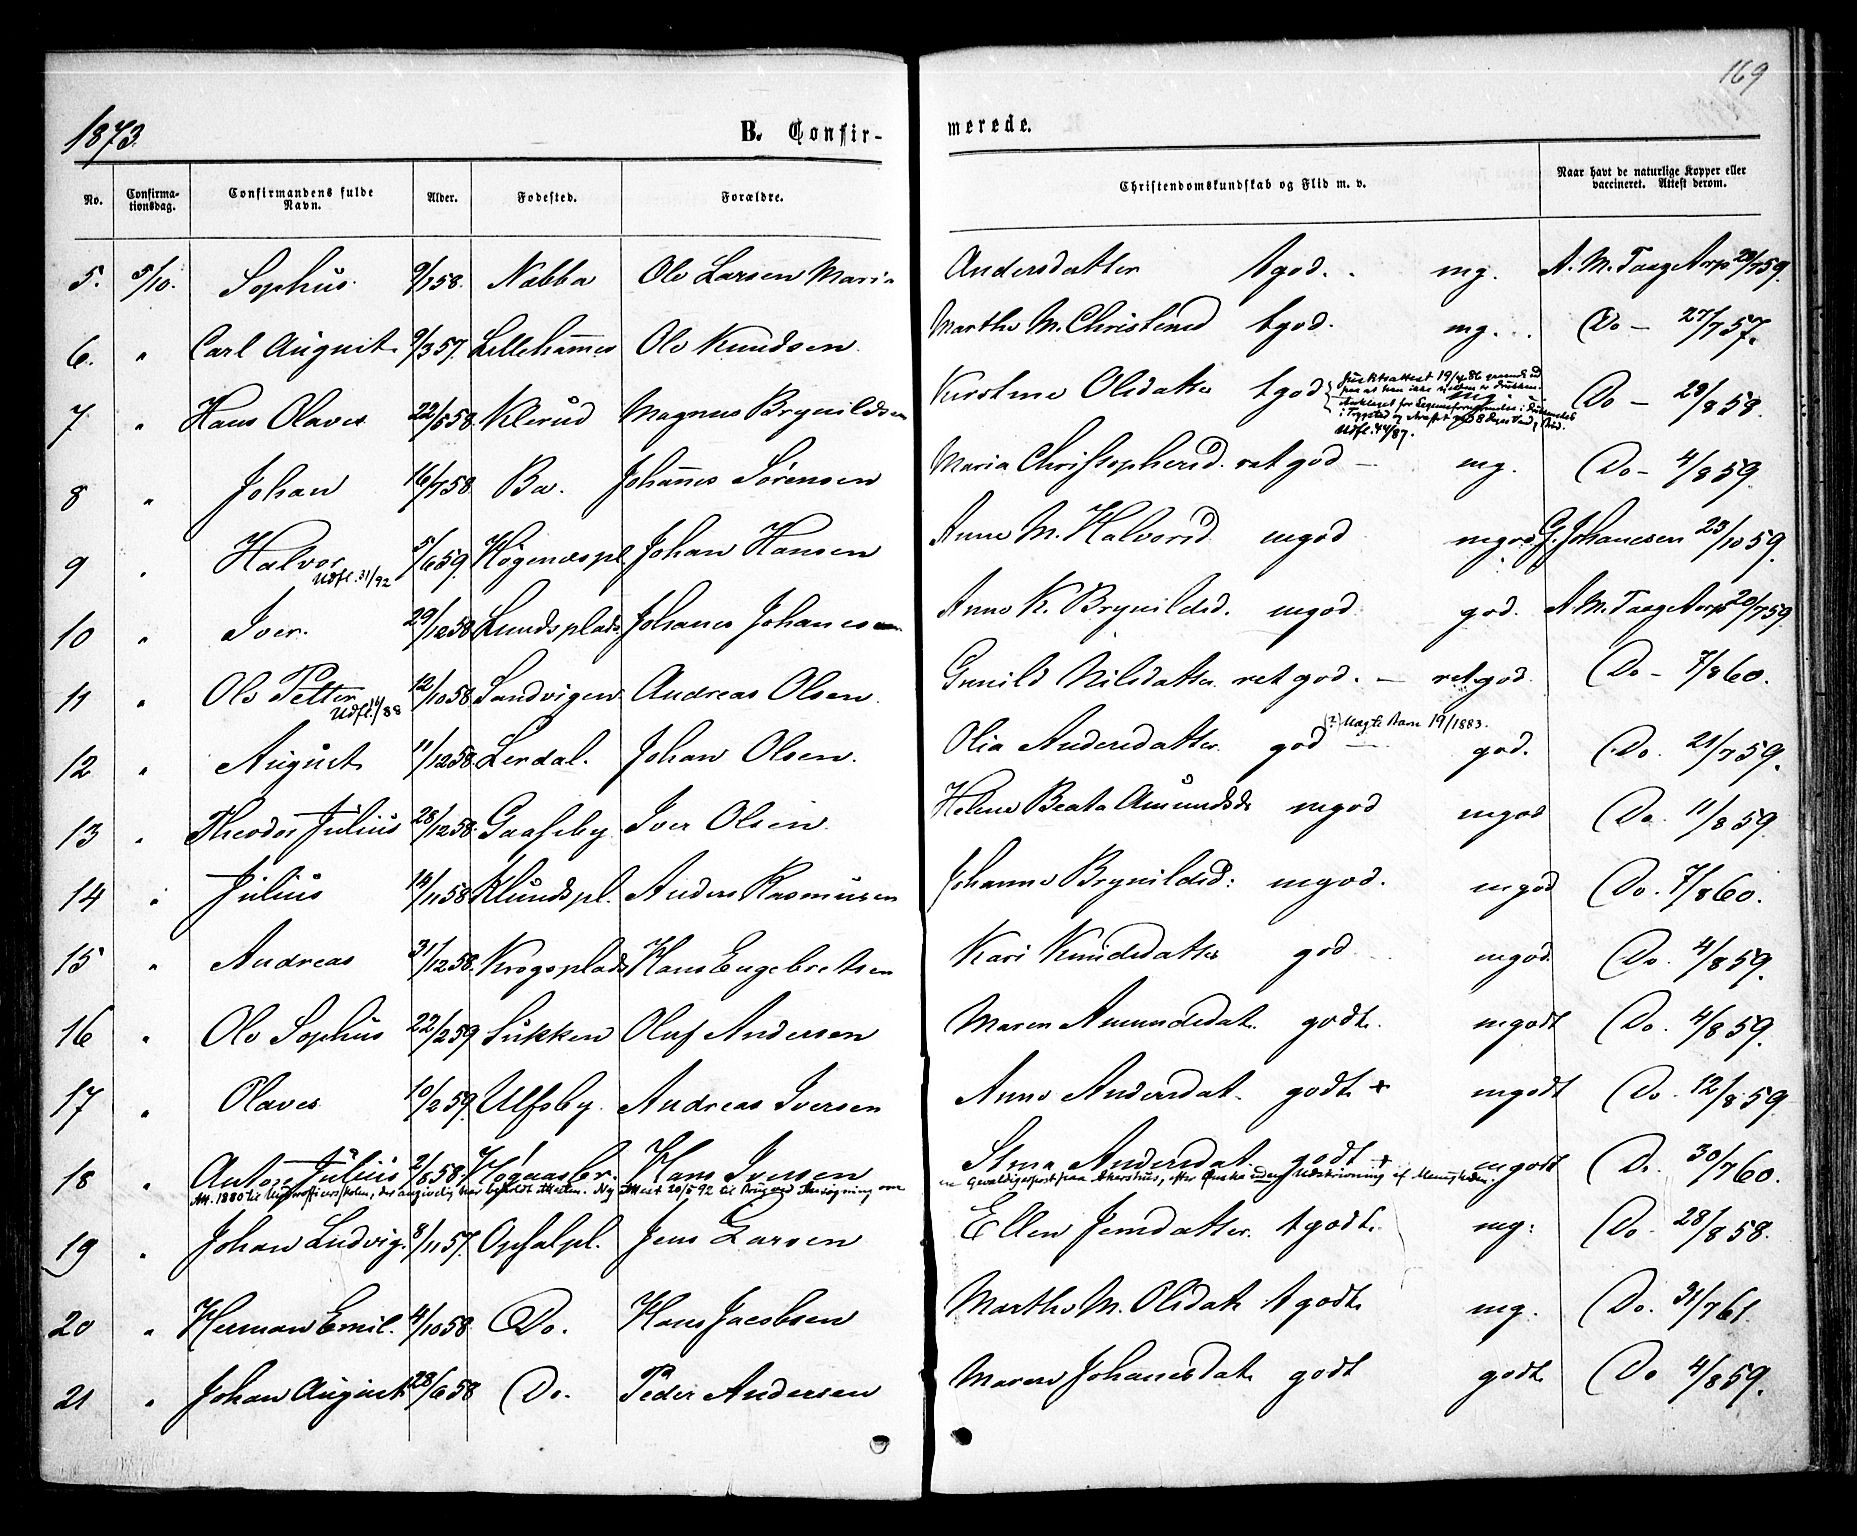 169
1873. B. Confir- merede.
No. Confirma-tionsdag. Confirmandens fulde Navn. Alder. Fødested. Forældre. Christendomskundskab og Flid m. v. Naar havt de naturlige Kopper eller vaccineret. Attest derom.
5. 5/10. Sophus. 9/1 58. Nabba Ole Larsen Maria Andersdatter tgod. mg. A. M. Taage Arp 29/7 59.
6. " Carl August 9/3 57. Lillehammer Ole Knudsen. Marthe M. Christensd tgod. mg. Do - 27/7 57.
7 " Hans Olaves 22/5 58. Klerud Magnus Brynildsen Kirstine Olsdatter tgod mg Do - 28/8 58.
Udfl. 44/87.
8 " Johan 16/7 58 Ba. Johannes Sørensen Maria Christophersd. ret god - mg. Do - 4/8 59.
9 " Halvor 5/6 59. Høgenespl Johan Hansen Anne M. Halvorsd mgod mgod G. Johanesen 23/10 59.
Udfl. 31/92
10 " Iver. 29/12 58 Lundsplads Johanes Johanesen Anne K. Brynildsd. mgod god. A M. Taage Arp 20/7 59.
11 " Ole Petter 12/10 58. Sandvigen Andreas Olsen. Gunild Nilsdatter ret god. - ret god. Do - 7/8 60.
Udfl. 11/88
12 " August 11/12 58. Lerdal. Johan Olsen. Olia Andersdatter god - god. Do. 21/7 59.
(?) Uægte Barn 19/1883.
13 " Theodor Julius 28/12 58. Gaaseby Iver Olsen. Helene Beata Amundsd mgod mgod Do. 11/8 59.
14 " Julius 14/11 58 Klundspl. Anders Rasmusen Johanne Brynildsd: mgod. mgod Do. 7/8 60.
15 " Andreas 31/12 58. Krogsplads Hans Engebretsen Kari Knudsdatter god mgod. Do. 4/8 59.
16 " Ole Sophus 22/2 59 Sukken Oluf Andersen Maren Amundsdat. godt. mgodt Do. 4/8 59.
17 " Olaves 10/2 59. Ulfsby. Andreas Iversen Anne Andersdat. godt + mgodt Do. 12/8 59
18 " Anton Julius 2/6 58. Høgaasbr. Hans Iversen Stina Andersdat. godt + mgodt Do. 30/7 60.
Att. 1880 til Underofficersskolen, der angivelig har beholdt Attesten. Ny Attest 20/5 92 til Brug ved Ansøgning om
en Gevaldigerpost paa Akershus, efter Ønske under Udskrivning af Menigheden.
19 " Johan Ludvig. 8/11 57. Opsalpl. Jens Larsen Ellen Jensdatter. tgodt. mg: Do. 28/8 58.
20 " Herman Emil. 4/10 58. Do. Hans Jacobsen Marthe M. Olsdat. tgodt. mg. Do. 31/7 61.
21 " Johan August 28/6 58 Do. Peder Andersen Maren Johanesdat. godt godt. Do 4/8 59.